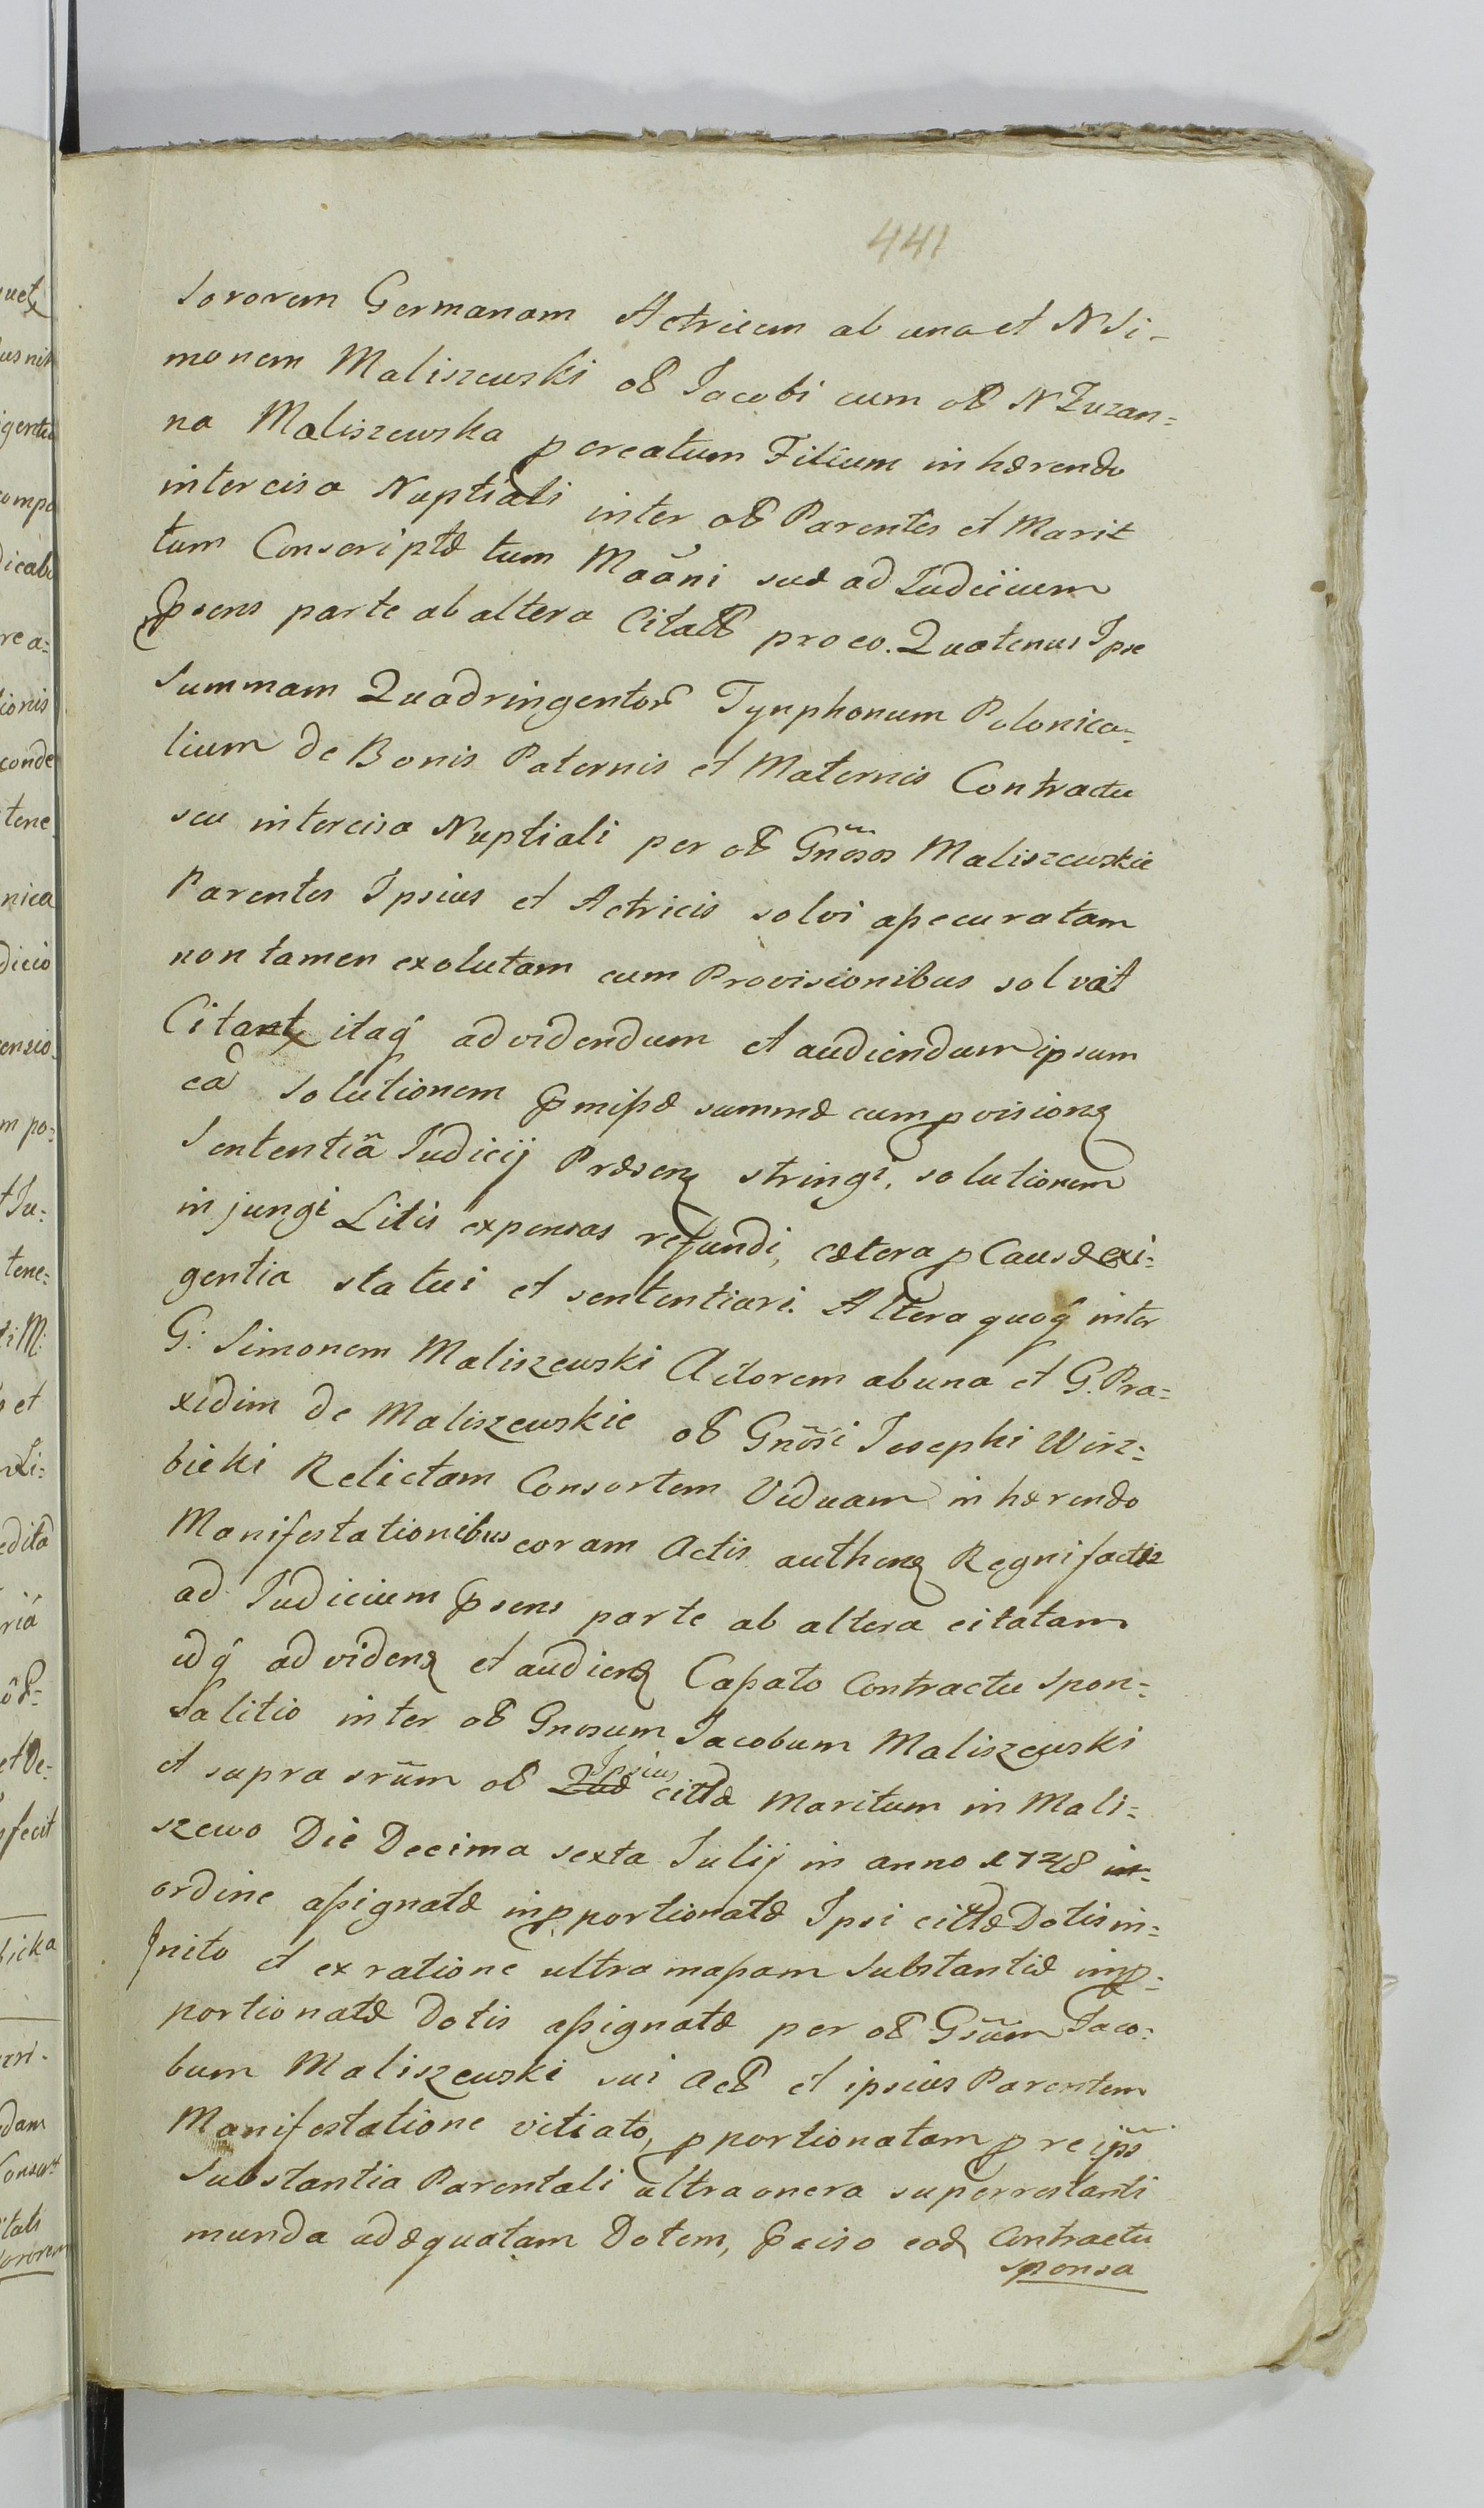 441
Sororem Germanam Actricem ab una et N Si-
monem Maliszewski oλ Jacobi cum oλ N Zuzan=
na Maliszewska pcreatum Filium inhærendo
intercisa Nuptiali inter oλ Parentes et Mari
tum Conscriptæ tum Maãni suæ ad Judicium
Psens parte ab altera Citatλ pro eo. Quatenus Ipse
Summam Quadringentor Tynphonum Polonica=
lium de Bonis Paternis et Maternis Contractu
seu intercisa Nuptiali per oλ Gnõsos Maliszewskie
Parentes Ipsius et Actricis solvi assecuratam
non tamen exolutam cum Provisionibus solvat
Citant itaq ad videndum et audiendum ipsum
ea Solutionem Pmissæ summæ cum pvisione
Sententiã Judicij Præsen stringi, solutionem
injungi Litis expensas refundi, cætera p Causæ exi=
gentia statui et sententiari. Altera quoq inter
G: Simonem Maliszewski Actorem ab una et G. Pra=
xidim de Maliszewskie oλ Gnõsi Josephi Wirz=
bicki Relictam Consortem Viduam inhærendo
Manifestationibus coram Actis authen Regni factis
ad Judicium Psens parte ab altera citatam
idq ad viden et audien Cassato Contractu Spon=
salitio inter oλ Gnosum Jacobum Maliszewski
et supra srũm oλ Ipsius cittæ Maritum in Mali=
szewo Die Decima sexta Julij in anno 1748 in=
ordine assignatæ inpportionatæ Ipsi cittæ Dotis in=
inito et ex ratione ultra massam Substantiæ imp=
portionatæ Dotis assignatæ per oλ Gsũm Jaco=
bum Maliszewski sui Acλ et ipsius Parentem
Manifestatione vitiato, pportionatam p re ipsã
Substantia Parentali ultra onera superrestanti
munda adæquatam Dotem, Pciso eod Contractu
sponsa